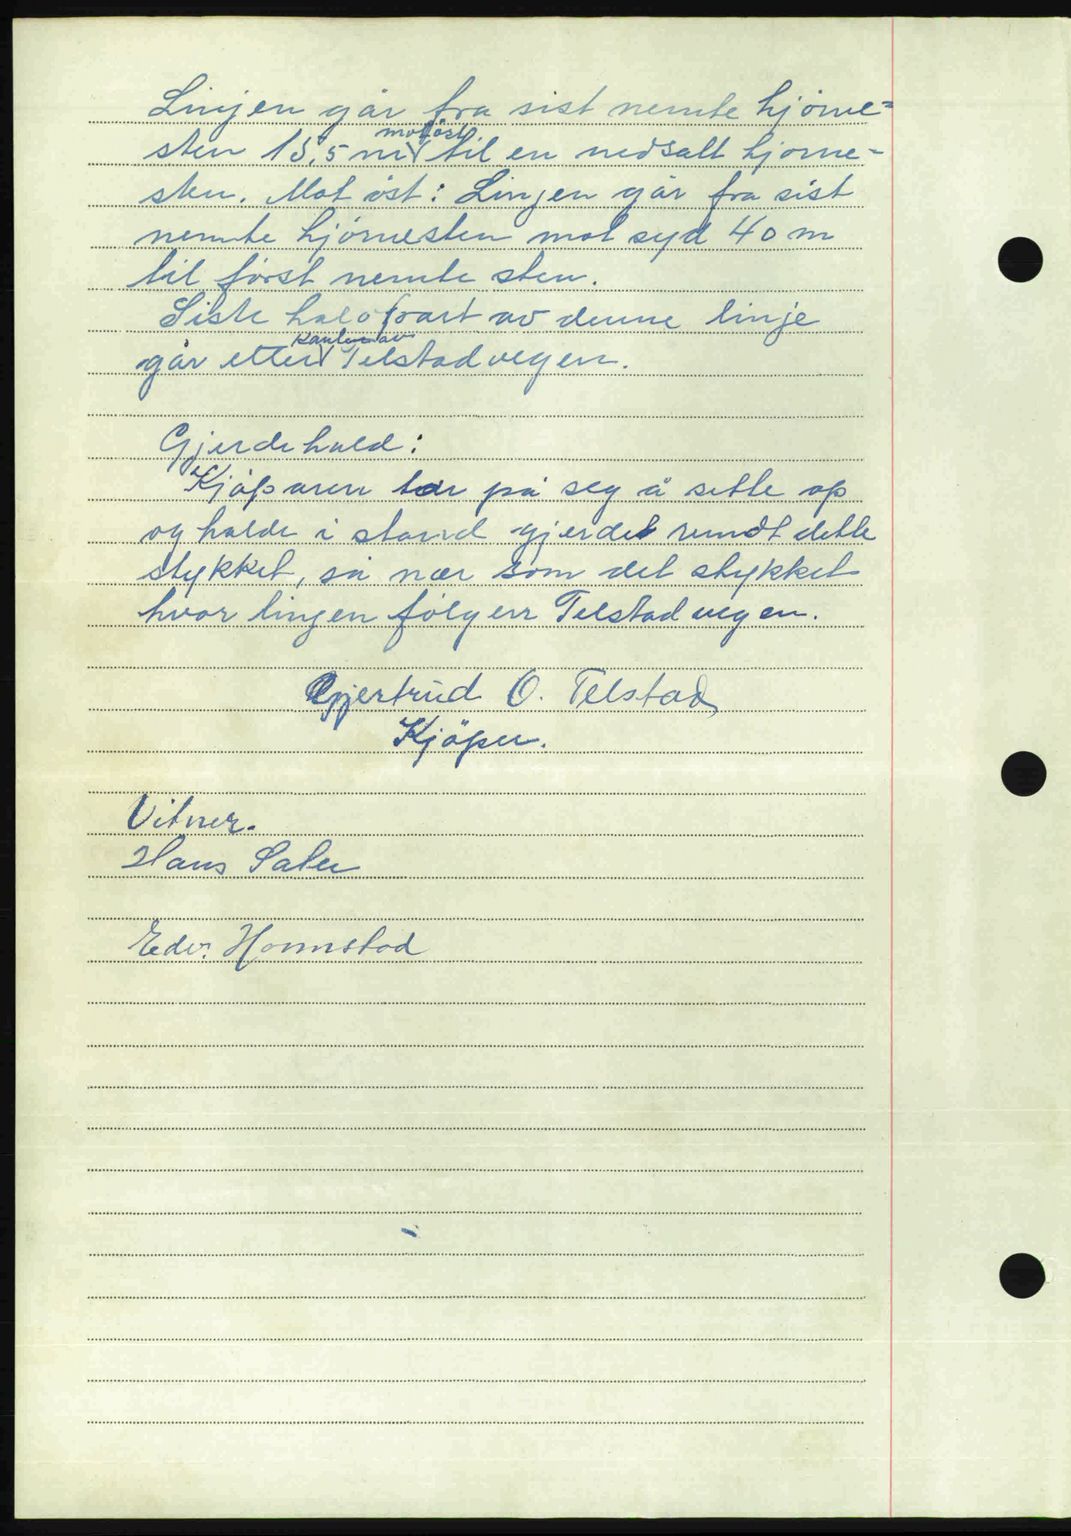 Linjen går fra sist nemte hjörne=
sten 13,5 m mot öst til en nedsatt hjorne-
sten. Mot öst: Linjen går fra sist
nemte hjörnesten mot syd 40 m
til först nemte sten.
Siste halvpart av denne linje
går etter kanten av Telstadvegen.
Gjerdehald:
Kjöparen tar på seg å sette op
og halde i stand gjerdet rundt dette
stykket, så nær som det stykket
hvor linjen fölgerr Telstadvegen.
Gjertrud O. Telstad
Kjöper.
Vitner.
Hans Sater
Edv. Hommstad